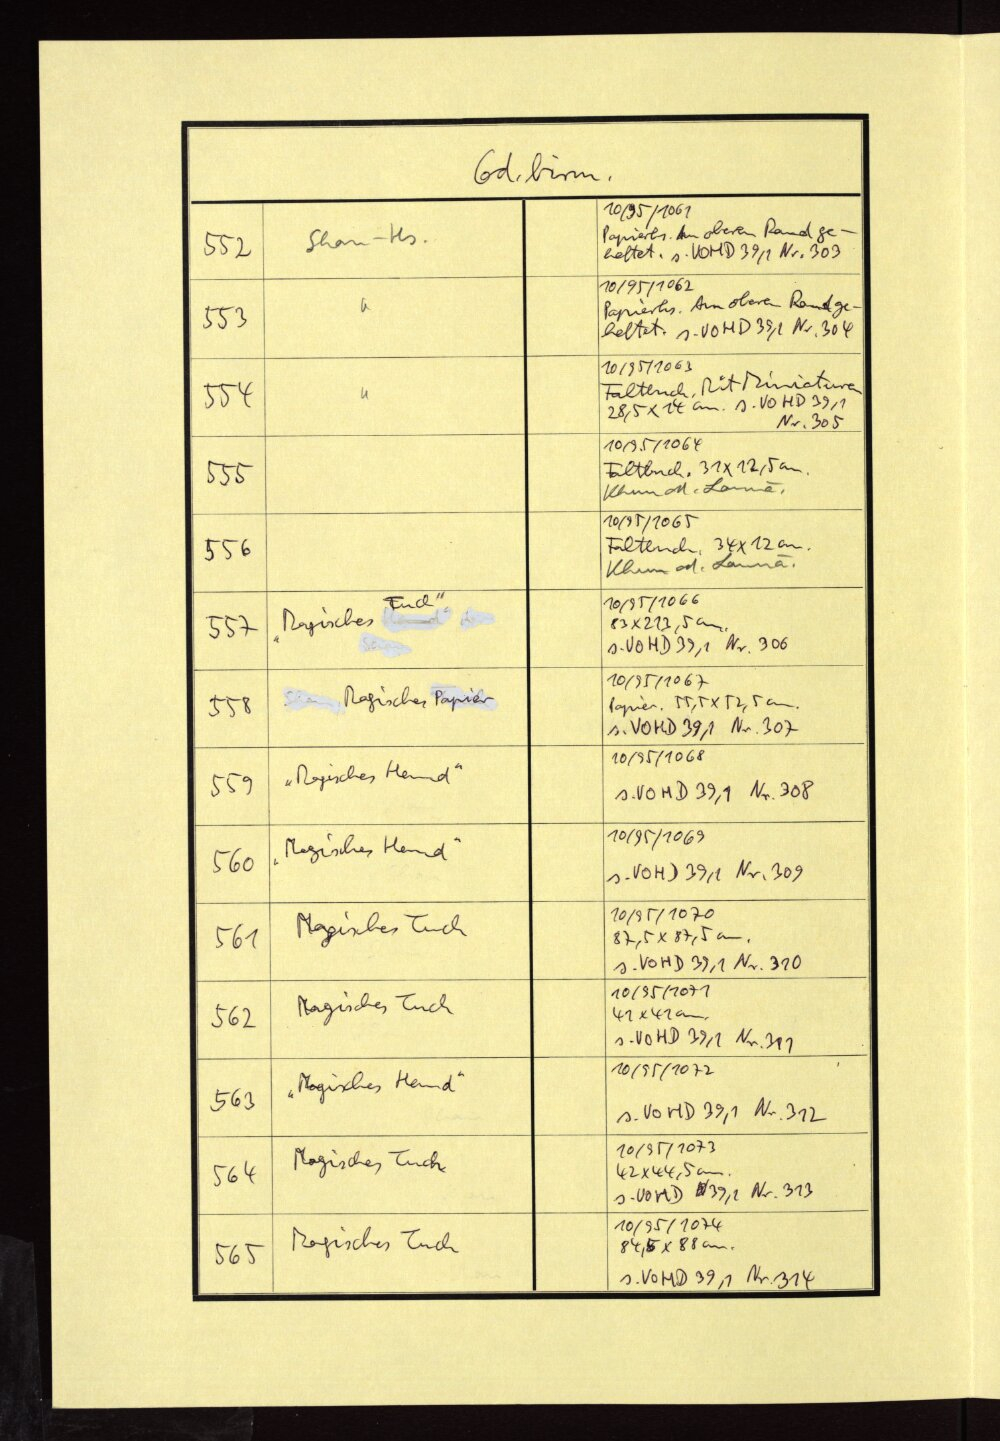 Cd. birm.
552 Shan-Hs.
10/95/1061
Papierhs. Am oberen Rand ge-
heftet. s. VOHD 39,1 Nr. 303
553 "
10/95/1062
Papierhs. Am oberen Rand ge-
heftet. s. VOHD 39,1 Nr. 304
554 "
10/95/1063
Faltbuch. Mit Miniaturen
28,5 x 14 cm. s. VOHD 39,1
Nr. 305
555
10/95/1064
Faltbuch. 31 x 12,5 cm.
Khün od. Lanna.
556
10/95/1065
Faltbuch. 34 x 12 cm.
Khün od. Lanna.
557 „Magisches Tuch"
10/95/1066
83 x 213,5 cm.
s. VOHD 39,1 Nr. 306
558 Magisches Papier
10/95/1067
Papier. 55,5 x 52,5 cm.
s. VOHD 39,1 Nr. 307
559 „Magisches Hemd"
10/95/1068
s. VOHD 39,1 Nr. 308
560 „Magisches Hemd"
10/95/1069
s. VOHD 39,1 Nr. 309
561 Magisches Tuch
10/95/1070
87,5 x 87,5 cm.
s. VOHD 39,1 Nr. 310
562 Magisches Tuch
10/95/1071
41 x 41 cm.
s. VOHD 39,1 Nr. 311
563 „Magisches Hemd"
10/95/1072
s. VOHD 39,1 Nr. 312
564 Magisches Tuch
10/95/1073
42 x 44,5 cm.
s. VOHD 39,1 Nr. 313
565 Magisches Tuch
10/95/1074
84,5 x 88 cm.
s. VOHD 39,1 Nr. 314